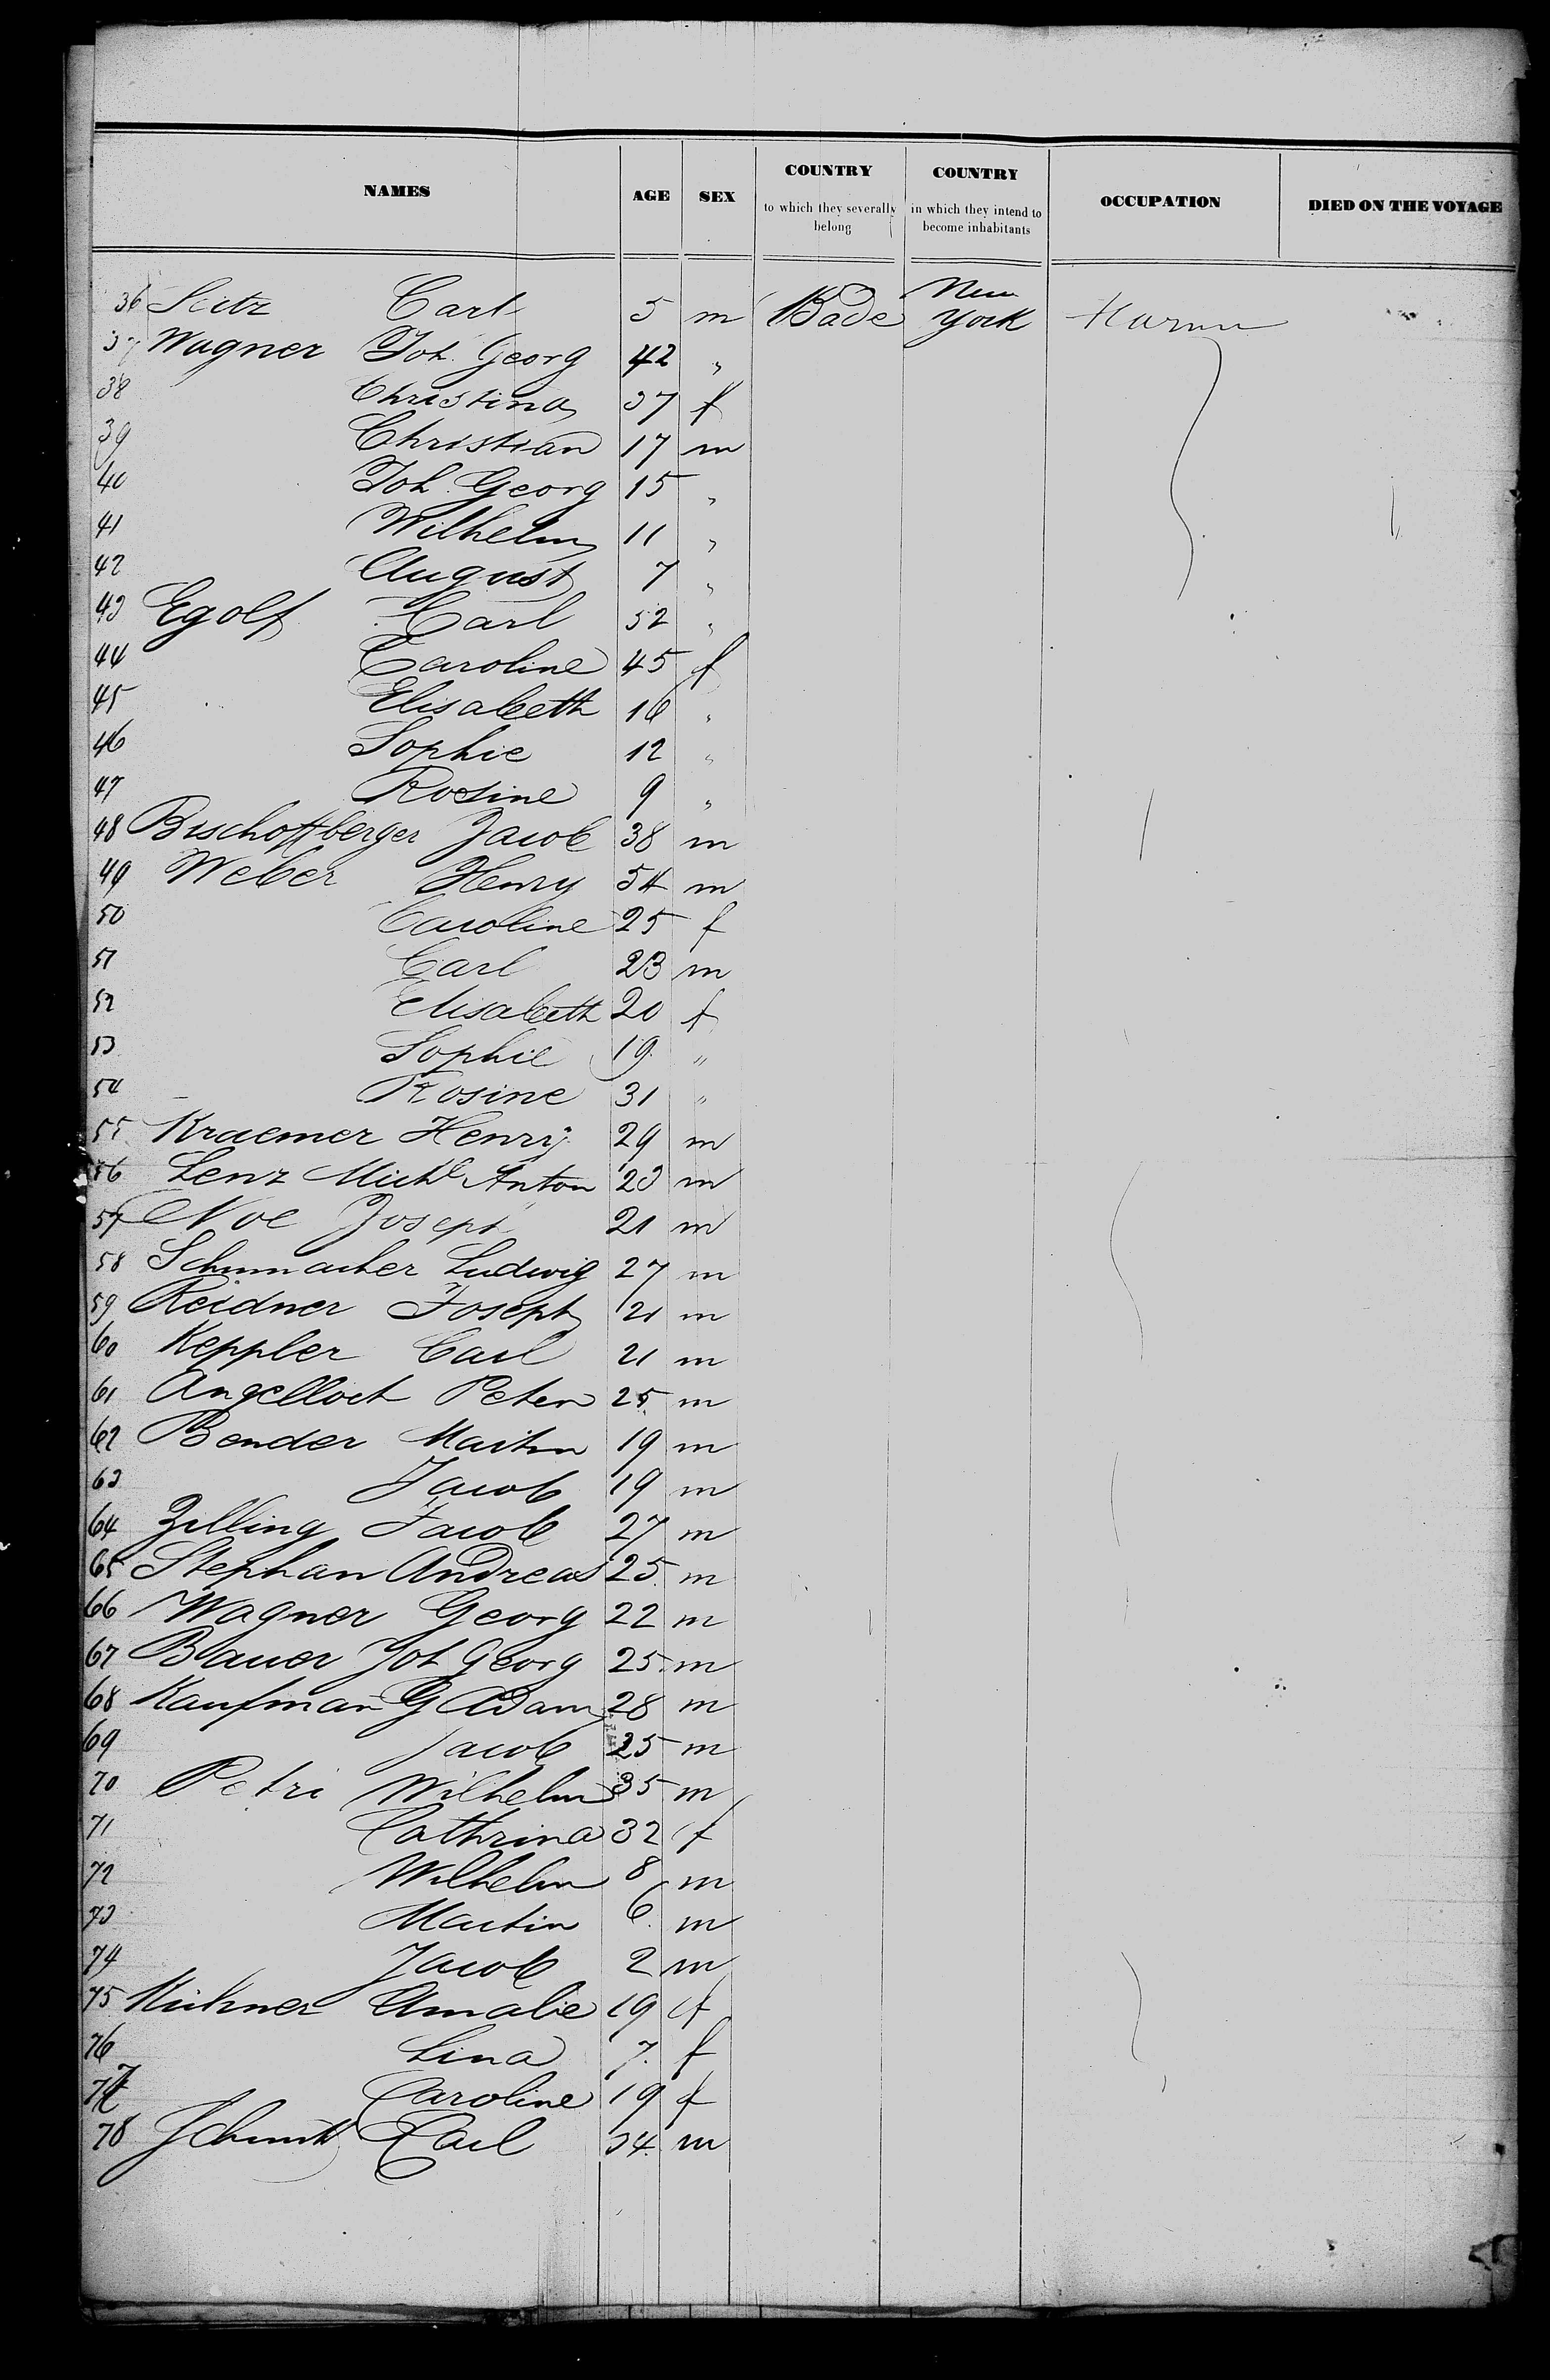 NAMES AGE SEX COUNTRY to which they severally belong COUNTRY in which they intend to become inhabitants OCCUPATION DIED ON THE VOYAGE
36 Seitz Carl 5 m Bade New York
37 Wagner Joh. Georg 42 "
38 Christina 37 f
39 Christian 17 m
40 Joh. Georg 15 "
41 Wilhelm 11 "
42 August 7 "
43 Egolf Carl 52 "
44 Caroline 45 f
45 Elisabeth 16 "
46 Sophie 12 "
47 Rosine 9 "
48 Bischoffberger Jacob 38 m
49 Weber Henry 54 m
50 Caroline 25 f
51 Carl 23 m
52 Elisabeth 20 f
53 Sophie 19 "
54 Rosine 31 "
55 Kraemer Henry 29 m
56 Lenz Michl Anton 23 m
57 Noe Joseph 21 m
58 Schumacher Ludwig 27 m
59 Reidner Joseph 21 m
60 Keppler Carl 21 m
61 Angelloch Peter 25 m
62 Bender Martin 19 m
63 Jacob 19 m
64 Zilling Jacob 27 m
65 Stephan Andreas 25 m
66 Wagner Georg 22 m
67 Bauer Joh Georg 25 m
68 Kaufman G Adam 28 m
69 Jacob 25 m
70 Petri Wilhelm 35 m
71 Cathrina 32 f
72 Wilhelm 8 m
73 Martin 6 m
74 Jacob 2 m
75 Kuhner Amalie 19 f
76 Lina 7 f
77 Caroline 19 f
78 Schmitt Carl 34 m